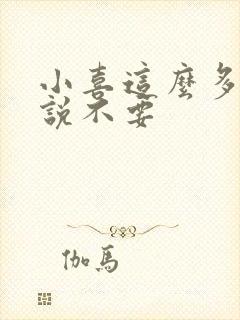 小喜這麼多
說不要
伽馬